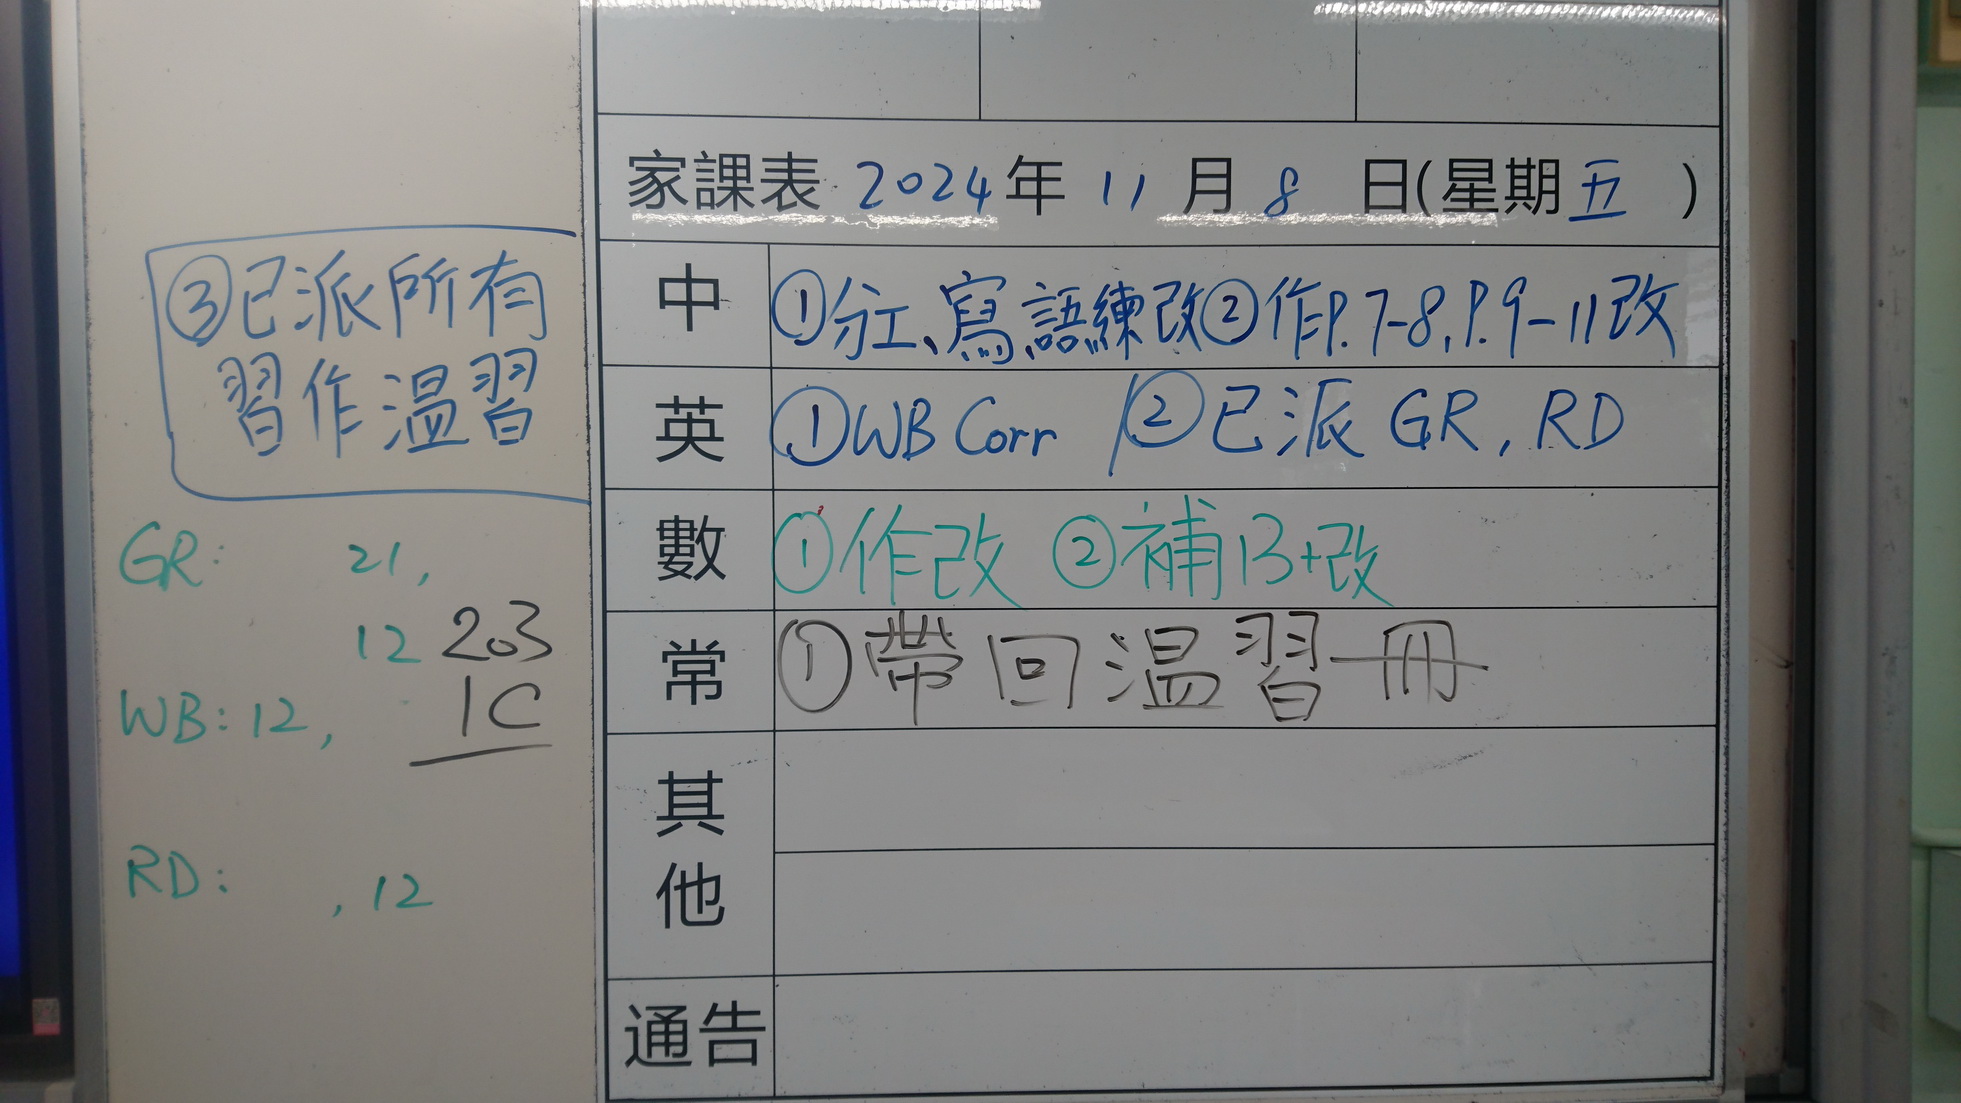 家課表 2024年 11 月 8 日(星期五 )
中 ①分工、寫、語練改②作P.7-8,P.9-11改
③已派所有
習作溫習
英 ①WB Corr /②已派 GR, RD
數 ①作改 ②補13+改
常 ①帶回溫習冊
其他
通告
GR: 21,
12
203
1C
WB: 12,
RD: , 12